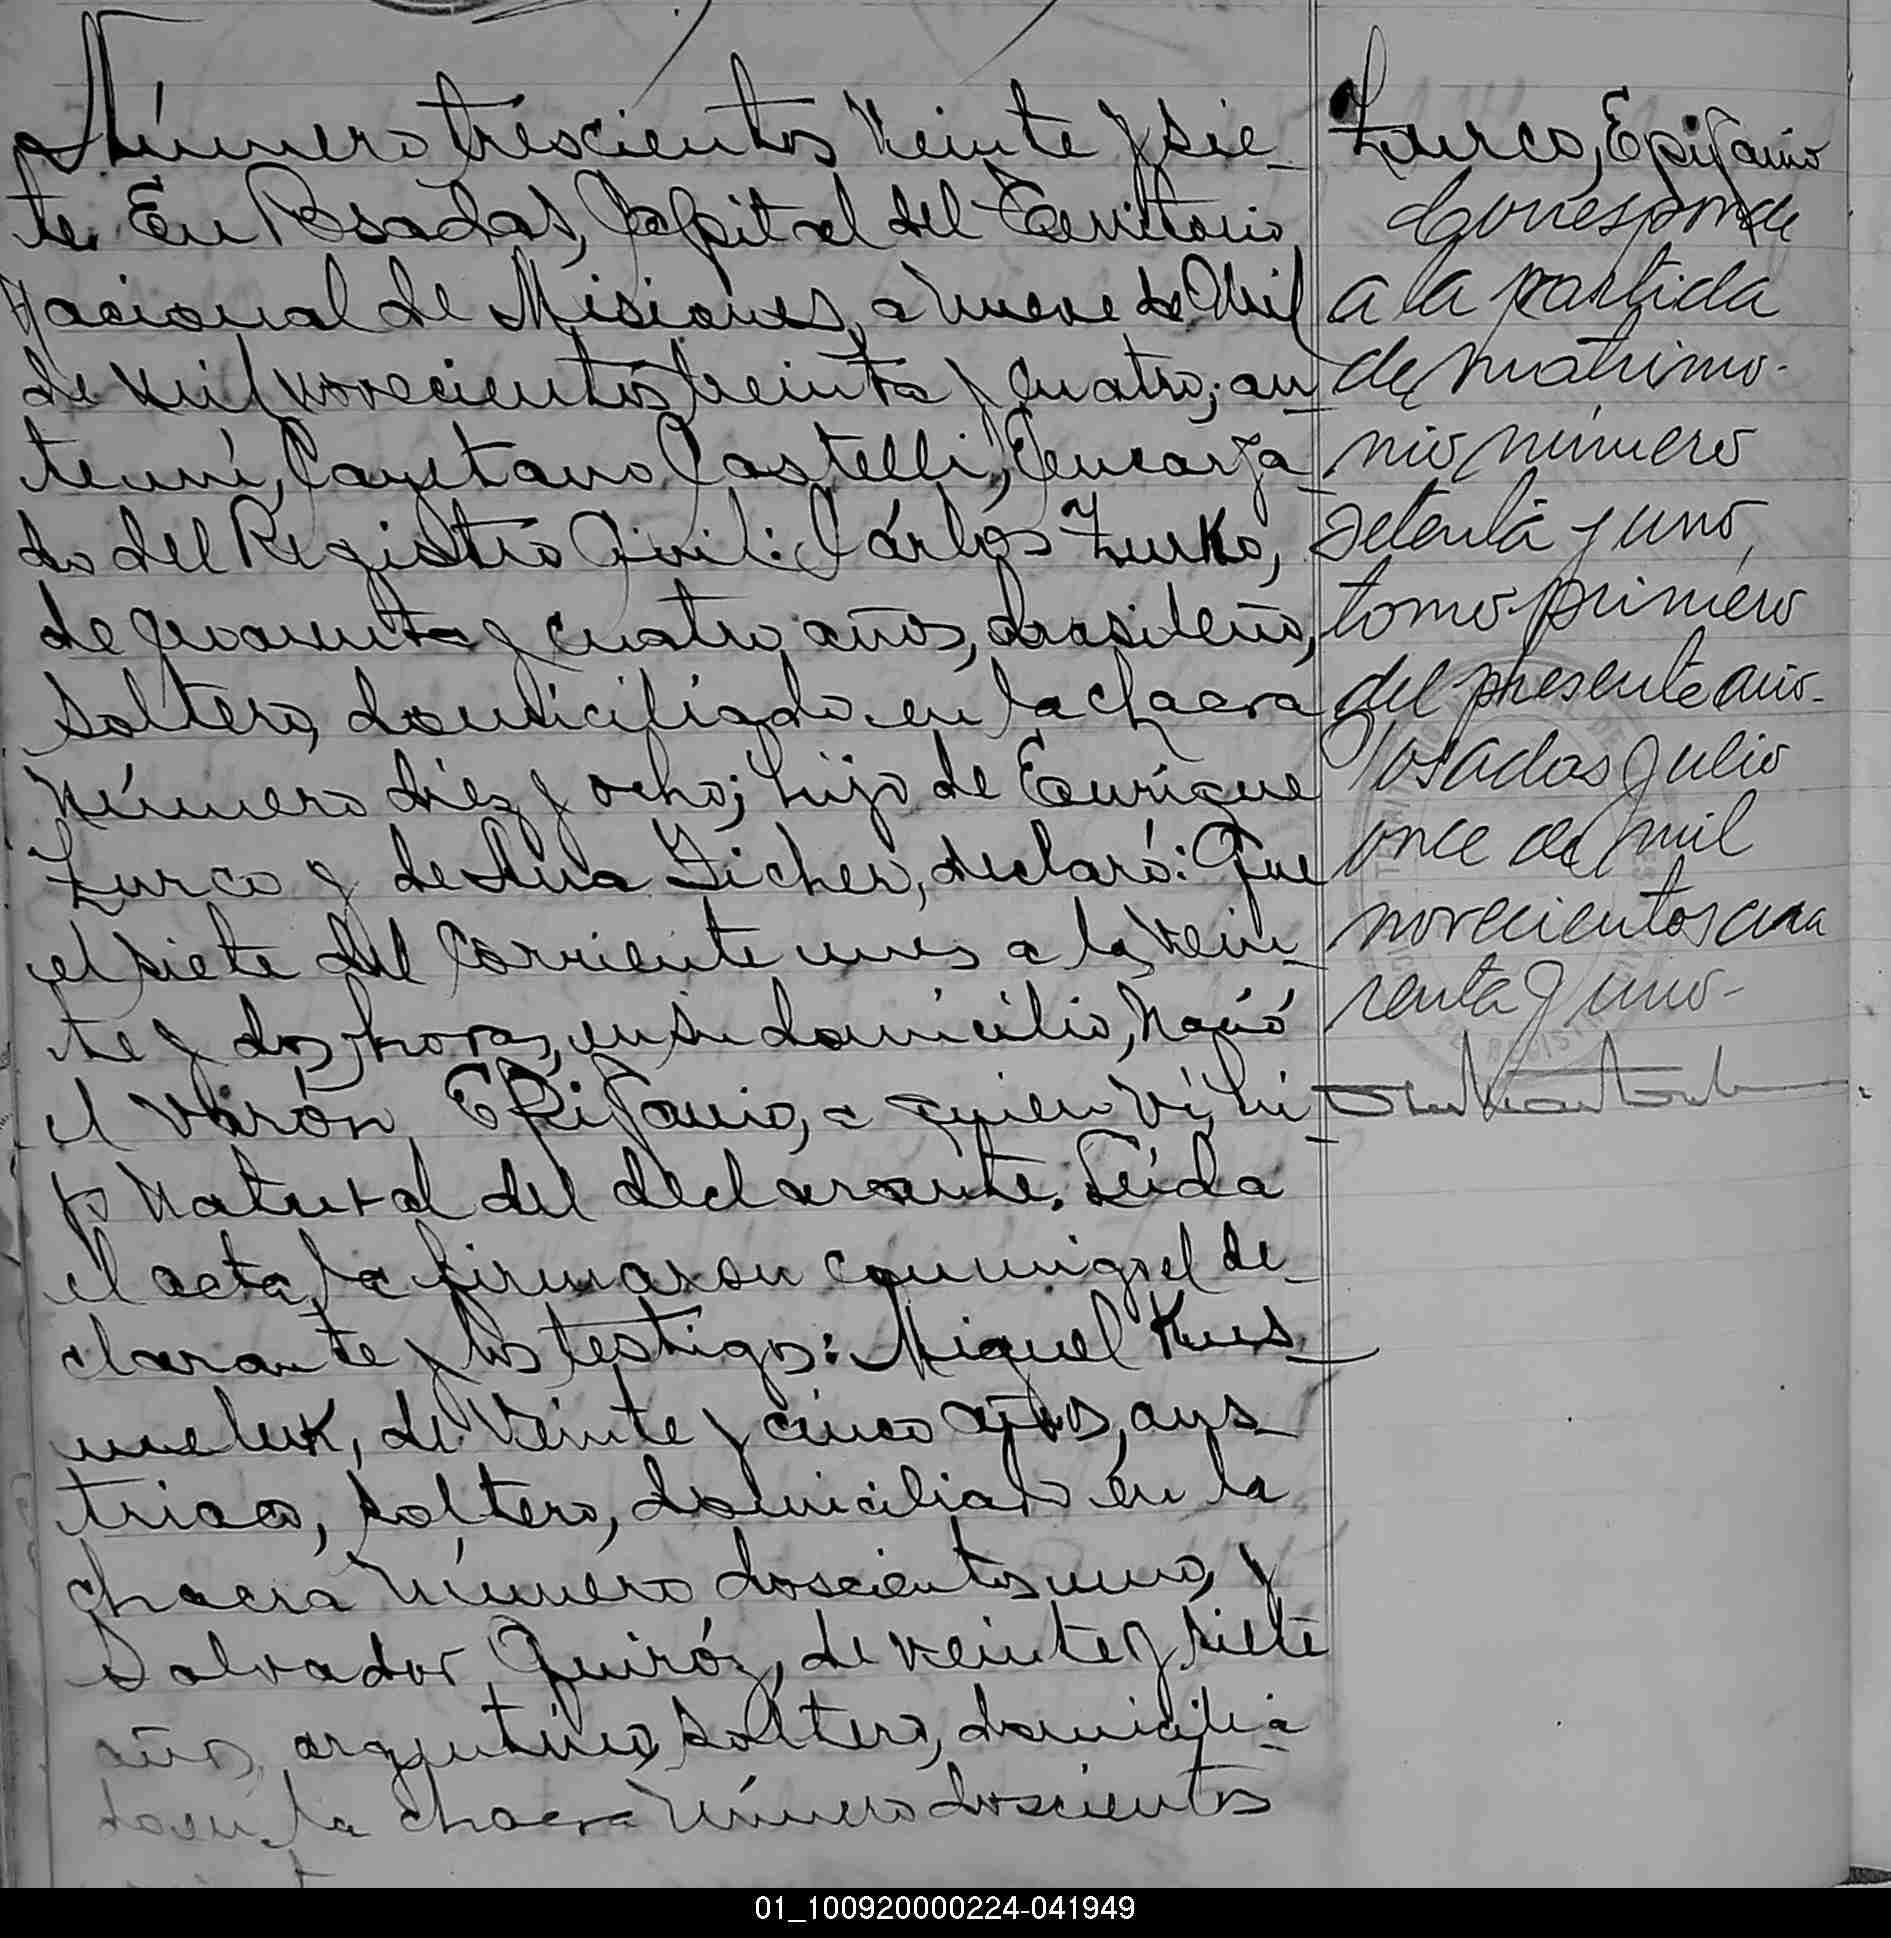 Número trescientos veinte y sie-
te. En Posadas, Capital del Territorio
Nacional de Misiones, a nueve de Abril
de mil novecientos treinta y cuatro; an-
te mí, Cayetano Castelli, Encarga-
do del Registro Civil: Cárlos Zurko,
de cuarenta y cuatro años, brasileño,
soltero, domiciliado en la chacra
número diez y ocho; hijo de Enrique
Zurco y de Ana Zicher, declaró: Que
el siete del corriente mes a las vein-
te y dos horas, en su domicilio, nació
el varón Epifanio, a quien ví, hi-
jo natural del declarante. Leída
el acta, la firmaron conmigo el de-
clarante y los testigos: Miguel Kus-
meluk, de veinte y cinco años, aus-
triaco, soltero, domiciliado en la
chacra número doscientos uno, y
Salvador Quiróz, de veinte y siete
años, argentino, soltero, domicilia-
do en la chacra número doscientos
Zurco, Epifanio
Corresponde
a la partida
de matrimo-
nio número
setenta y uno,
tomo primero
del presente año-
Posadas Julio
once de mil
novecientos cua
renta y uno-
01_100920000224-041949